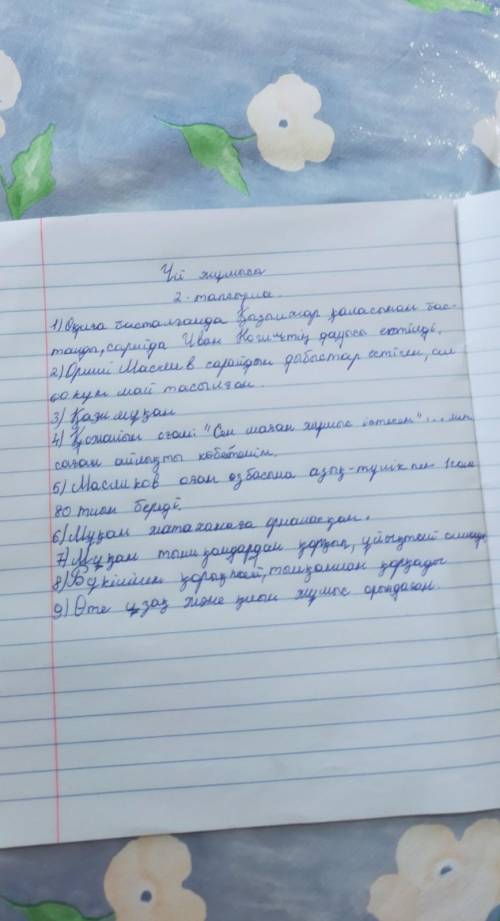 Үй жұмысы
2-тапсырма.
1) Оқиға басталғанда Қызылжар қаласынан бас-
талды, сарайда Иван дауысы естілді.
2) Орыны Масликов сарайдың дыбыстар естіген, ол
60 күн май тасылған.
3) Қажымұқан
4) Қожайын сөзі "Сен маған жұмыс істесең"... мен
саған айлықты көбейтемін.
5) Масликов оған өз басына азық-түлік пен 1 сом
80 тиын берді.
6) Мұқан жатаханаға орналасқан.
7) Мұқан тышқандардан қорқып, ұйықтай алмады
8) Бүкісінен қорықпай, тышқаннан қорқады
9) Өте ұзақ және қиын жұмыс орындаған.